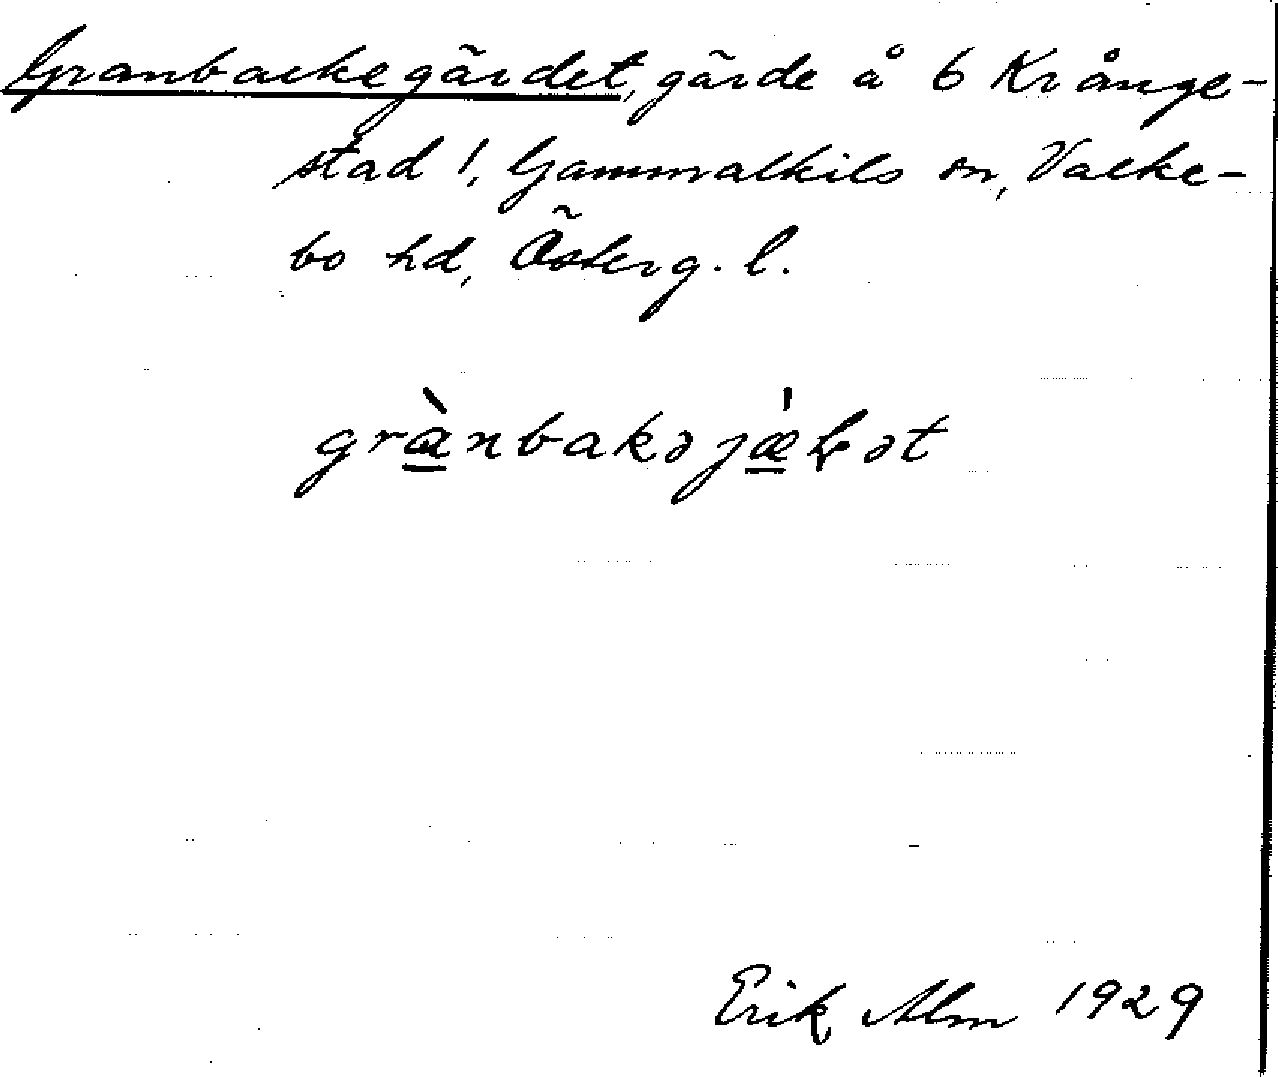 Granbackegärdet, gärde å 6 Krånge-
stad 1, Gammalkils sn, Valke-
bo hd, Österg. l.
grànbakəjæ̀ɽət
Erik Alm 1929